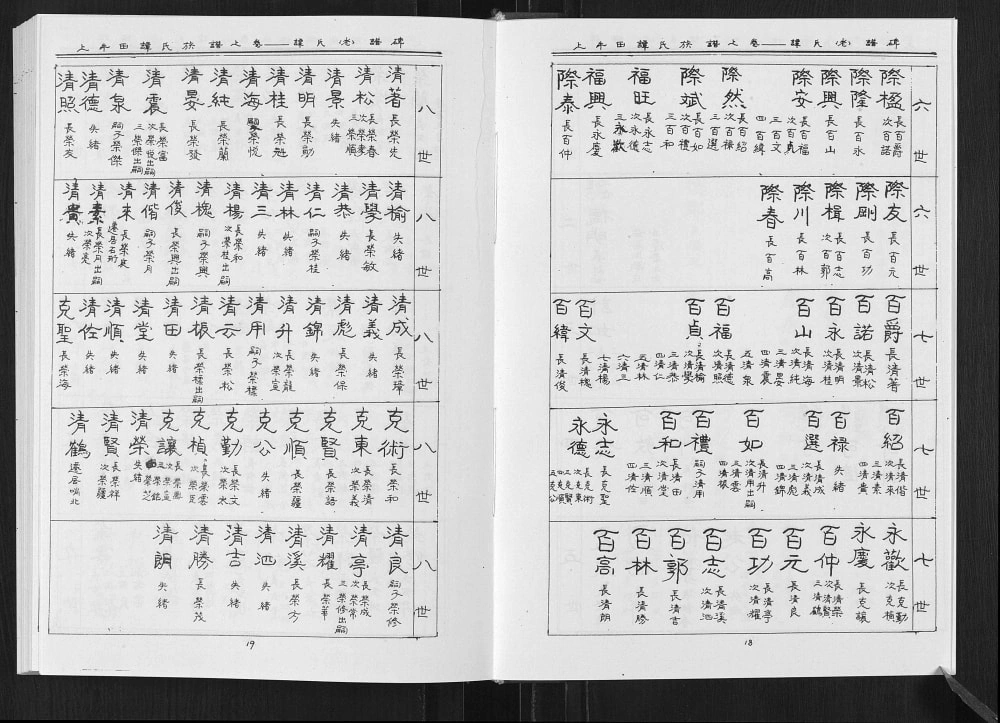 上牟田譚氏族譜上卷——譚氏(老)譜碑
六世
際楹 長百爵 次百諾
際隆 長百永
際興 長百山
際安 長百福 次百貞 三百文 四百緯
際然 長百紹 次百祿 三百選
際斌 長百如 次百禮 三百和
福旺 長永志 次永德 三永歡
福興 長永慶
際泰 長百仲
六世
際友 長百元
際剛 長百功
際楫 長百志 次百郭
際川 長百林
際春 長百高
七世
百爵 長清著
百諾 長清松 次清景
百永 長清明 次清桂
百山 長清海 次清純 三清晏 四清震 五清泉
百福 長清德 次清照
百貞 長清榆 次清學 三清恭 四清仁 五清林 六清三 七清楊
百文 長清槐
百緯 長清俊
七世
百紹 長清偕 次清來 三清素 四清貴
百祿 失緒
百選 長清成 次清義 三清彪 四清錦
百如 長清升 次清用出嗣 三清雲 四清振
百禮 嗣子清用
百和 長清田 次清堂 三清順 四清佺
永志 長克聖
永德 長克術 次克東 三克賢 四克順 五克公
七世
永歡 長克勤 次克楨
永慶 長克讓
百仲 長清榮 次清賢 三清鶴
百元 長清良
百功 長清亭 次清耀
百志 長清溪 次清泗
百郭 長清吉
百林 長清勝
百高 長清朗
18
上牟田譚氏族譜上卷——譚氏(老)譜碑
八世
清著 長榮先
清松 長榮春 次榮麥 三榮順
清景 失緒
清明 長榮勛
清桂 長榮魁
清海 嗣子榮悅
清純 長榮蘭
清晏 長榮發
清震 長榮富 次榮悅出嗣 三榮傑出嗣
清泉 嗣子榮傑
清德 失緒
清照 長榮友
八世
清榆 失緒
清學 長榮敏
清恭 失緒
清仁 嗣子榮桂
清林 失緒
清三 失緒
清楊 長榮和 次榮桂出嗣
清槐 嗣子榮興
清俊 長榮興出嗣
清偕 嗣子榮月
清來 長榮庭
清素 長榮月出嗣 次榮亮
清貴 失緒
八世
清成 長榮璋
清義 失緒
清彪 長榮保
清錦 失緒
清升 長榮龍 次榮宣
清用 嗣子榮標
清云 長榮松
清振 長榮標出嗣
清田 失緒
清堂 失緒
清順 失緒
清佺 失緒
克聖 長榮海
八世
克術 長榮和
克東 長榮清 次榮義
克賢 長榮話
克順 長榮疆
克公 失緒
克勤 長榮文 次榮太
克楨 長榮雲 次榮臣
克讓
清榮 失緒
清賢 長榮祥 次榮疆
清鶴
八世
清良 嗣子榮修
清亭 長榮成 次榮常 三榮修出嗣
清耀 長榮華
清溪 長榮方
清泗 失緒
清吉 失緒
清勝 長榮茂
清朗 失緒
19